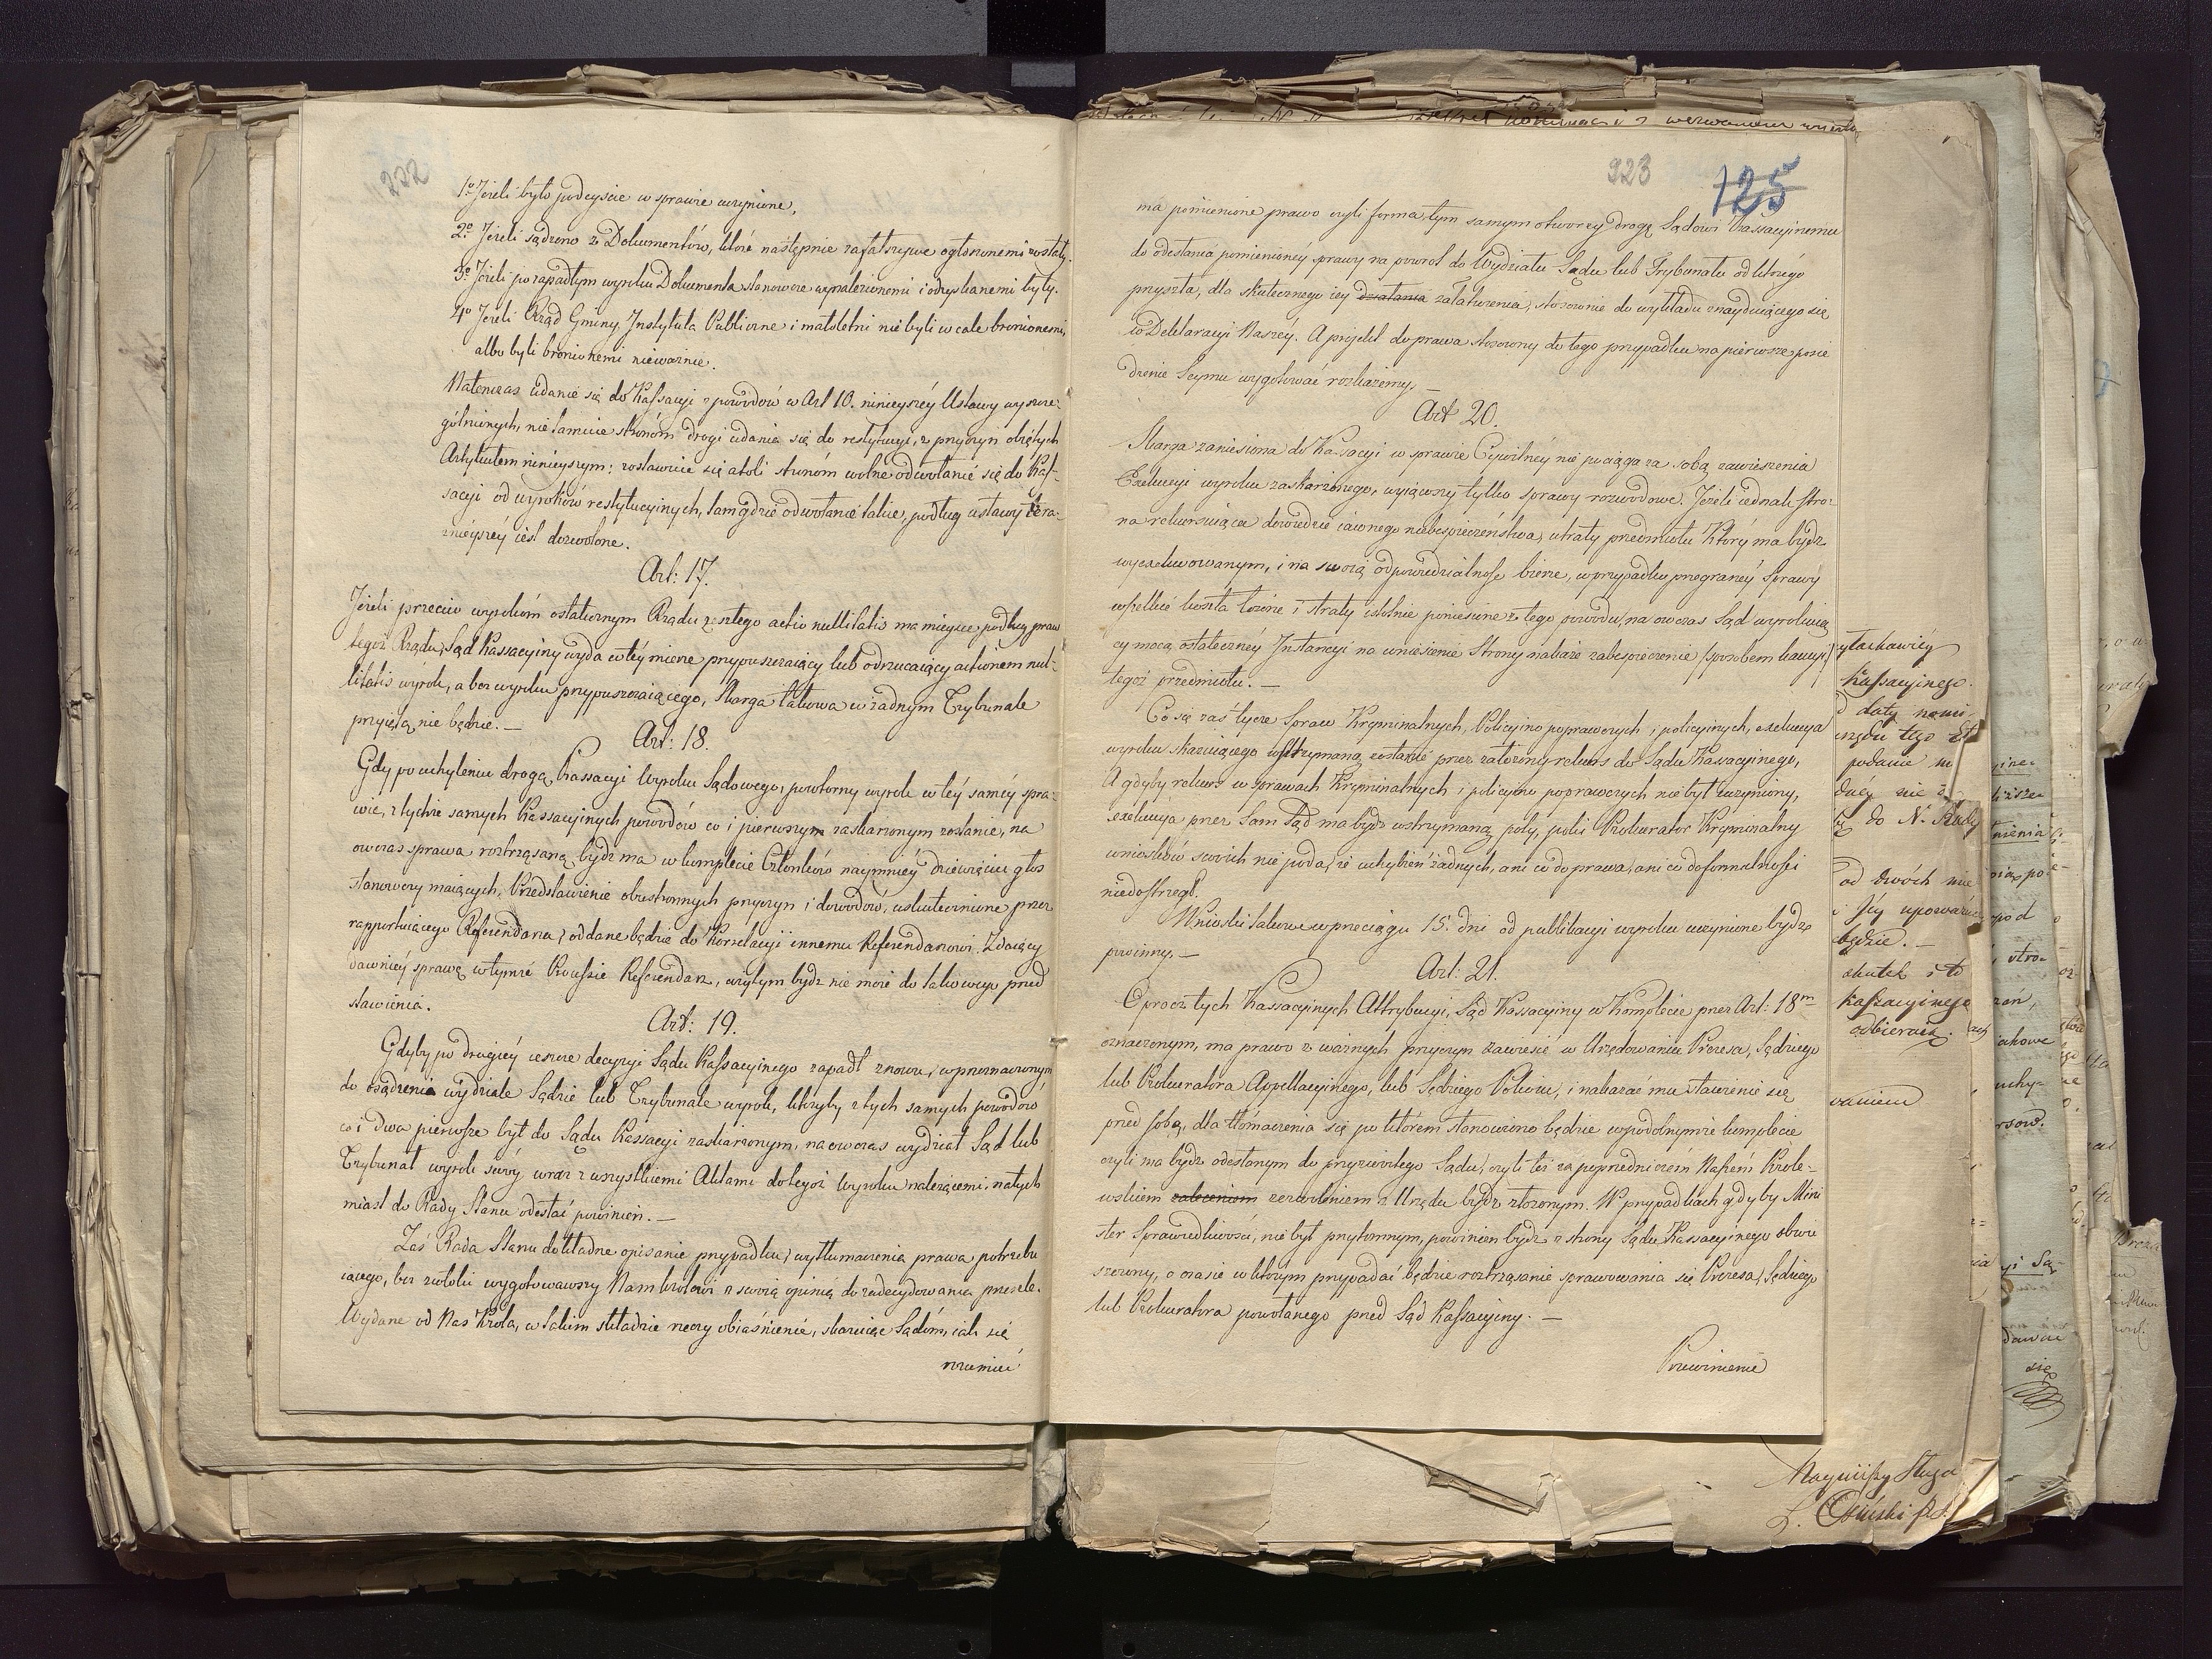 222
1º Jeżeli było podeyście w sprawie uczynione,
2º Jeżeli sądzono z Dokumentów, które następnie za fałszywe ogłoszonemi zostały.
3º Jeżeli po zapadłym wyroku Dokumenta stanowcze wynalezionemi i odzyskanemi były.
4º Jeżeli Rząd Gminy, Instytuta Publiczne i małoletni nie byli w cale bronionemi,
albo byli bronionemi nieważnie.
Natenczas udanie się do Kassacyi z powodów w Art 10. ninieyszéy Ustawy wyszcze-
gólnionych, nie tamuie stronóm drogi udania się do restytucyi, z przyczyn obiętych
Artykułem ninieyszym; zostawuie się atoli stronóm wolne odwołanie się do Kas-
sacyi od wyroków restytucyinych, tam gdzie odwołanie takie, podług ustawy tera-
znieyszéy iest dozwolone.
Art: 17.
Jeżeli przeciw wyrokóm ostatecznym Rządu zeszłego actio nullitatis ma mieysce podług praw
tegoż Rządu, Sąd Kassacyiny wyda w téy mierze przypuszczaiący lub odrzucaiący actionem nul-
litatis wyrok, a bez wyroku przypuszczaiącego, skarga takowa w żadnym Trybunale
przyiętą nie będzie. —
Art: 18.
Gdy po uchyleniu drogą Kassacyi Wyroku Sądowego, powtorny wyrok w téy saméy spra-
wie, z tychże samych Kassacyinych powodów co i pierwszym zaskarzonym zostanie, na
owczas sprawa roztrząsaną bydz ma w komplecie Członków naymniéy dziewięciu głos
stanowczy maiących, Przedstawienie obustronnych przyczyn i dowodów, uskutecznione przez
rapportuiącego Referendarza, oddane będzie do Korrelacyi innemu Referendarzowi. Zdaiący
dawniéy sprawę w tymże Processie Referendarz, użytym bydz nie może do takowego przed
stawienia.
Art: 19.
Gdyby po drugiéy ieszcze decyzyi Sądu Kassacyinego zapadł znowu, w przeznaczonym
do osądzenia wydziale Sądzie lub Trybunale wyrok, któryby z tych samych powodów
co i dwa pierwsze był do Sądu Kassacyi zaskarżonym, na owczas wydział Sąd lub
Trybunał wyrok swóy wraz z wszystkiemi Aktami do tegoż Wyroku należącemi, natych
miast do Rady Stanu odesłać powinien. —
Zaś Rada Stanu dokładne opisanie przypadku, wytłumaczenia prawa potrzebu
iącego, bez zwłoki wygotowawszy Nam Królowi z swoią opinią do zadecydowania przeszle.
Wydane od Nas Króla, w takim składzie rzeczy obiaśnienie, skazuiąc Sądóm, iak się
rozumieć
923
125
ma pomienione prawo czyli forma, tym samym otworzy drogę Sądowi Kassacyinemu
do odesłania pomienionéy sprawy na powrot do Wydziału Sądu lub Trybunału od którego
przyszła, dla skutecznego iey działania załatwienia, stosownie do wykładu znayduiącego się
w Deklaracyi Naszéy. A projekt do prawa stosowny do tego przypadku na pierwsze posie
dzenie Seymu wygotować rozkażemy. —
Art 20.
Skarga zaniesiona do Kassacyi w sprawie Cywilnéy nie pociąga za sobą zawieszenia
Exekucyi wyroku zaskarżonego, wyiąwszy tylko sprawy rozwodowe. Jeżeli iednak stro-
na rekursuiąca dowiedzie iawnego niebespieczeństwa, utraty przedmiotu Który ma bydz
wyexekwowanym, i na swoią odpowiedzialność bierze, w przypadku przegranéy sprawy
wszelkie koszta łożone i straty istotnie poniesione z tego powodu, na owczas Sąd wyrokuią
cy mocą ostatecznéy Instancyi na wniesienie Strony nakaże zabespieczenie /sposobem kaucyi/
tegoż przedmiotu. —
Co się zaś tycze Spraw Kryminalnych, Policyino poprawczych i policyinych, exekucya
wyroku skazuiącego wstrzymaną zostanie przez założony rekurs do Sądu Kassacyinego,
A gdyby rekurs w sprawach Kryminalnych i policyino poprawczych nie był uczyniony,
exekucya przez Sam Sąd ma bydz wstrzymaną poty, poki Prokurator Kryminalny
wniosków swoich nie poda, że uchybień żadnych, ani co do prawa, ani co do formalności
niedostrzegł.
Wnioski takowe w przeciągu 15. dni od publikacyi wyroku uczynione bydz
powinny. —
Art: 21.
Oprocz tych Kassacyinych Attrybucyi, Sąd Kassacyiny w Komplecie przez Art: 18m
oznaczonym, ma prawo z ważnych przyczyn zawiesić w Urzędowaniu Prezesa, Sędziego
lub Prokuratora Appellacyinego, lub Sędziego Pokoiu, i nakazać mu stawienie się
przed sobą, dla tłómaczenia się po którém stanowiono będzie w podobnymże komplecie
czyli ma bydz odesłanym do przyzwoitego Sądu, czyli też za poprzedniczém Naszém Króle-
wskiem zaleceniem zezwoleniem z Urzędu bydz złożonym. W przypadkach gdyby Mini
ster Sprawiedliwości, nie był przytomnym, powinien bydz z strony Sądu Kassacyinego obwie
szczony, o czasie w którym przypadać będzie roztrząsanie sprawowania się Prezesa, Sędziego
lub Prokuratora powołanego przed Sąd Kassacyiny. —
Przewinienie
Kassacyinego.
daty nomi-
urzędu tego
podanie
do N. Rady
od dwóch
i Jéy upoważ
będzie. —
skutek i to
Kassacyinego
odbieraią.
waniem
Nayniższy Sługa
L. Osiński